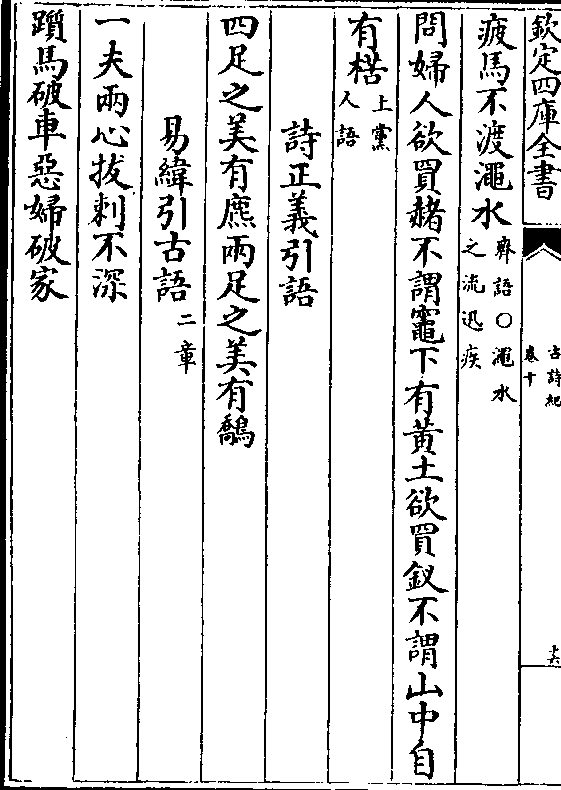 欽定四庫全書
古詩紀
卷十
十六
疲馬不渡澠水齊語○澠水之流迅疾
問婦人欲買赭不謂竈下有黃土欲買釵不謂山中自
有楛上黨人語
詩正義引語
四足之美有麃兩足之美有鷮
易緯引古語二章
一夫兩心拔刺不深
躓馬破車惡婦破家